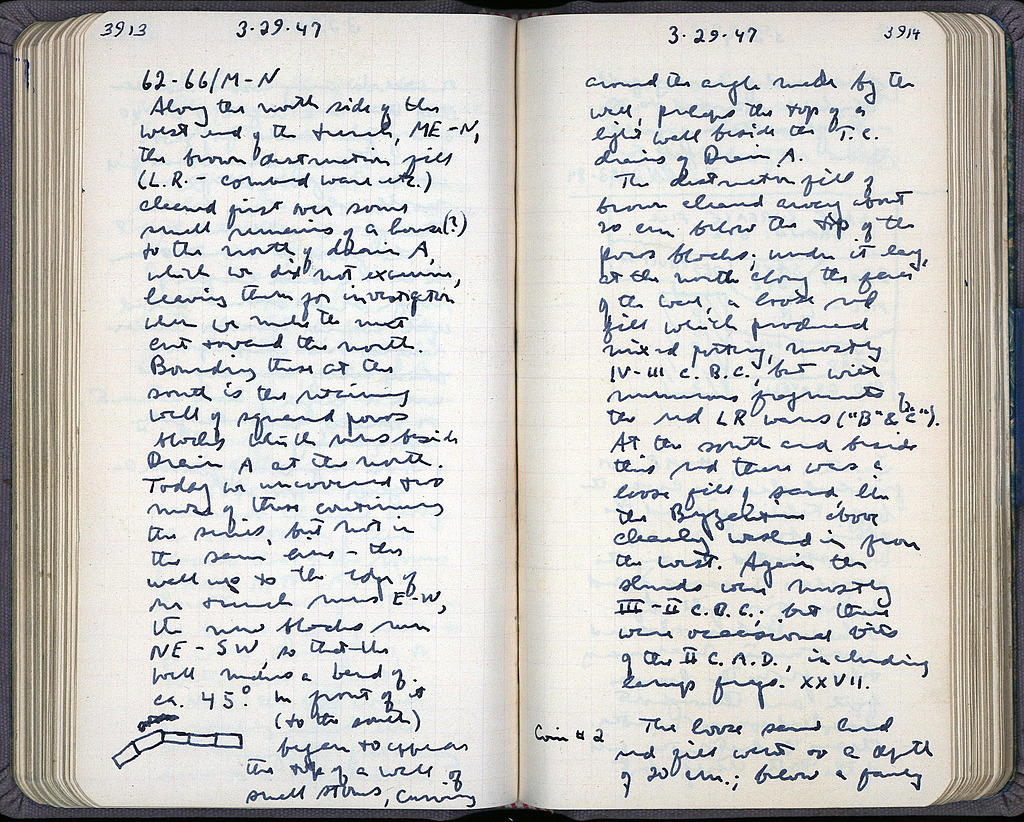 3913
3·29·47
62-66/M-N
Along the north side of the
west end of the trench, ME-N,
the brown destruction fill
(L.R. - combed ware etc.)
cleaned just over some
small remains of a house(?)
to the north of drain A,
which we did not examine,
leaving them for investigation
when we make the next
cut toward the north.
Bounding these at the
south is the retaining
wall of squared poros
blocks which runs beside
Drain A at the north.
Today we uncovered two
more of these continuing
the series, but not in
the same line - the
wall up to the edge of
our trench runs E-W,
the new blocks run
NE-SW, so that the
wall makes a bend of
ca. 45°. In front of it
(to the south)
began to appear
the top of a wall of
small stones, curving
3·29·47
3914
around the angle made by the
wall, perhaps the top of a
light wall beside the T.C.
drains of Drain A.
The destruction fill of
brown cleaned away about
20 cm below the top of the
poros blocks; under it lay,
at the north along the face
of the wall, a loose red
fill which produced
mixed pottery, mostly
IV-III C. B.C., but with
numerous fragments of
the red LR wares ("B" & "C"?).
At the south and beside
this red there was a
loose fill of sand, like
the Byzantine above
clearly washed in from
the west. Again the
sherds were mostly
III-II C. B.C.; but there
were occasional bits
of the II C. A.D., including
lamp frags. XXVII.
Coin # 2
The loose sand and
red fill went to a depth
of 20 cm.; below a fairly